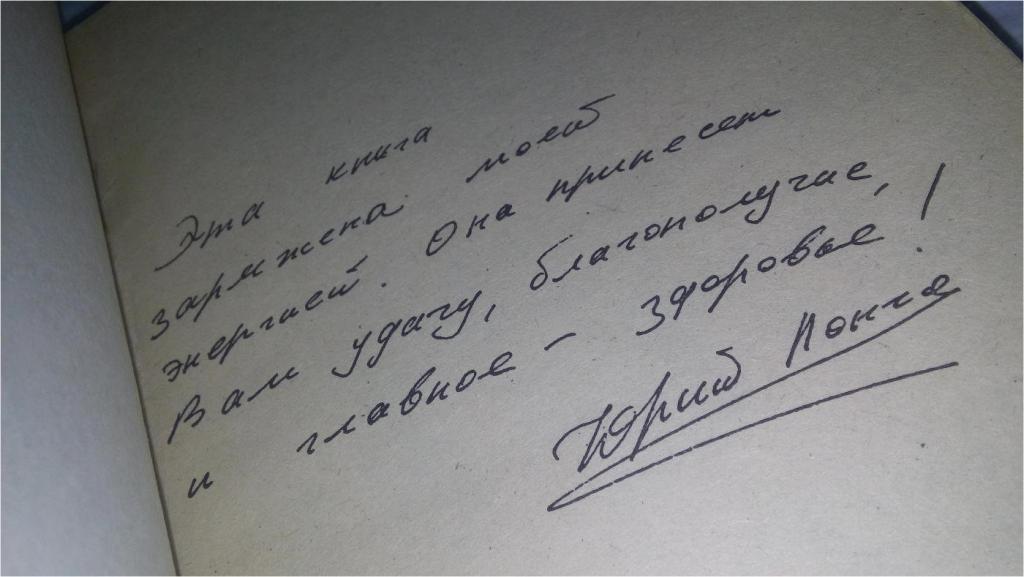 Эта книга
заряжена моей
энергией. Она принесет
Вам удачу, благополучие,
и главное - здоровье!
Юрий Лонго